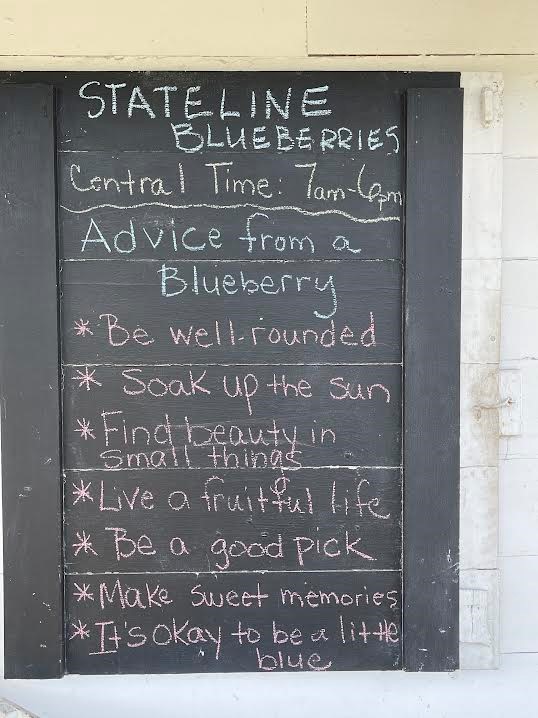 STATELINE
BLUEBERRIES
Central Time: 7am-6pm
Advice from a
Blueberry
* Be well-rounded
* Soak up the sun
* Find beauty in
small things
* Live a fruitful life
* Be a good pick
* Make sweet memories
* It's okay to be a little
blue